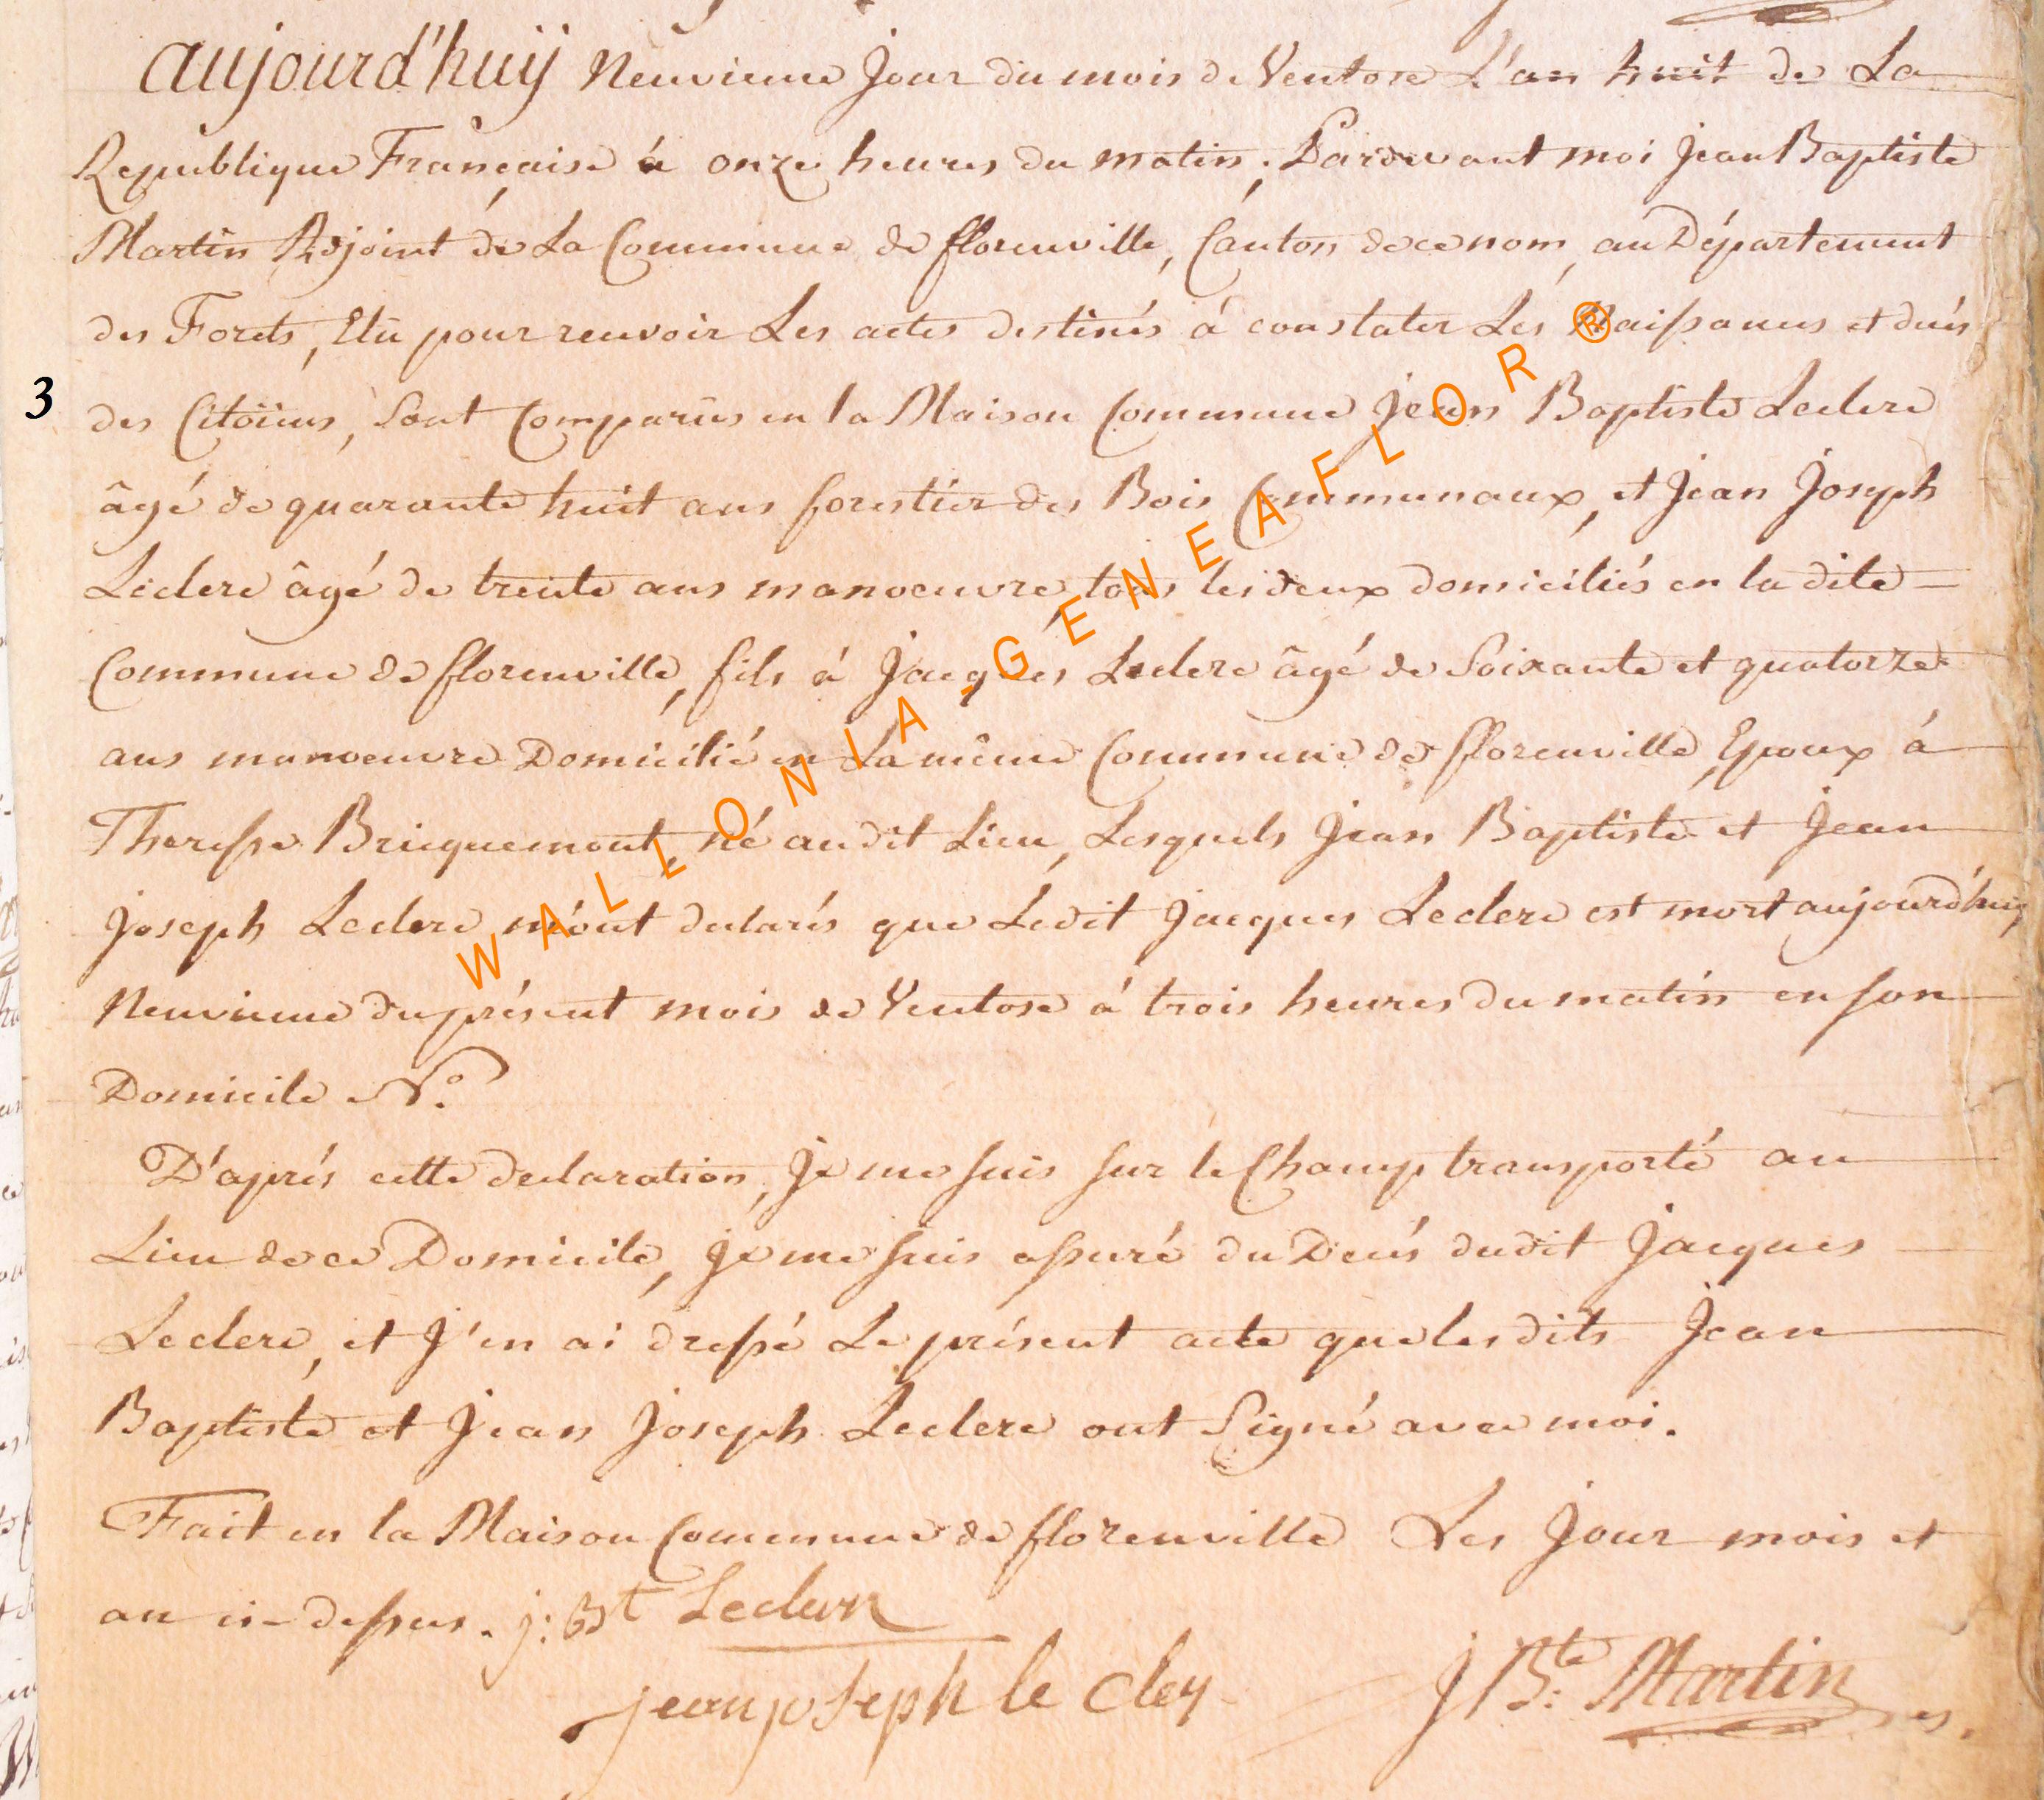 aujourd'huÿ Neuvieme Jour du mois de Ventose L'an huit de La
Republique Française à onze heures du matin; Pardevant moi Jean Baptiste
Martin Adjoint de La Commune de florenville, Canton de ce nom, au Département
des Forets, Elu pour recevoir Les actes destinés á constater Les Naissances et decés
3 des Citoiens, sont Comparus en la Maison Commune Jean Baptiste Leclerc
âgé de quarante huit ans forestier des Bois Communaux, et Jean Joseph
Leclerc âgé de trente ans manoeuvre, tous les deux domiciliés en la dite
Commune de florenville, fils á Jacques Leclerc âgé de Soixante et quatorze
ans manoeuvre Domicilié en La même Commune de florenville, Epoux á
Theresse Bricquemont, né audit Lieu, Lesquels Jean Baptiste et Jean
Joseph Leclerc m'ont declarés que Ledit Jacques Leclerc est mort aujourd'huy
Neuvieme du présent mois de Ventose á trois heures du matin en son
Domicile N°.
D'aprés cette declaration, Je me suis sur le Champ transporté au
Lieu de ce Domicile, Je me suis assuré du Decés dudit Jacques
Leclerc, et J'en ai dressé Le présent acte que lesdits Jean
Baptiste et Jean Joseph Leclerc ont Signé avec moi.
Fait en la Maison Commune de florenville Les Jour mois et
an ci-dessus. j: Bt Leclerc
jean joseph le cler
J Bte: Martin
WALLONIA_GENEAFLOR®